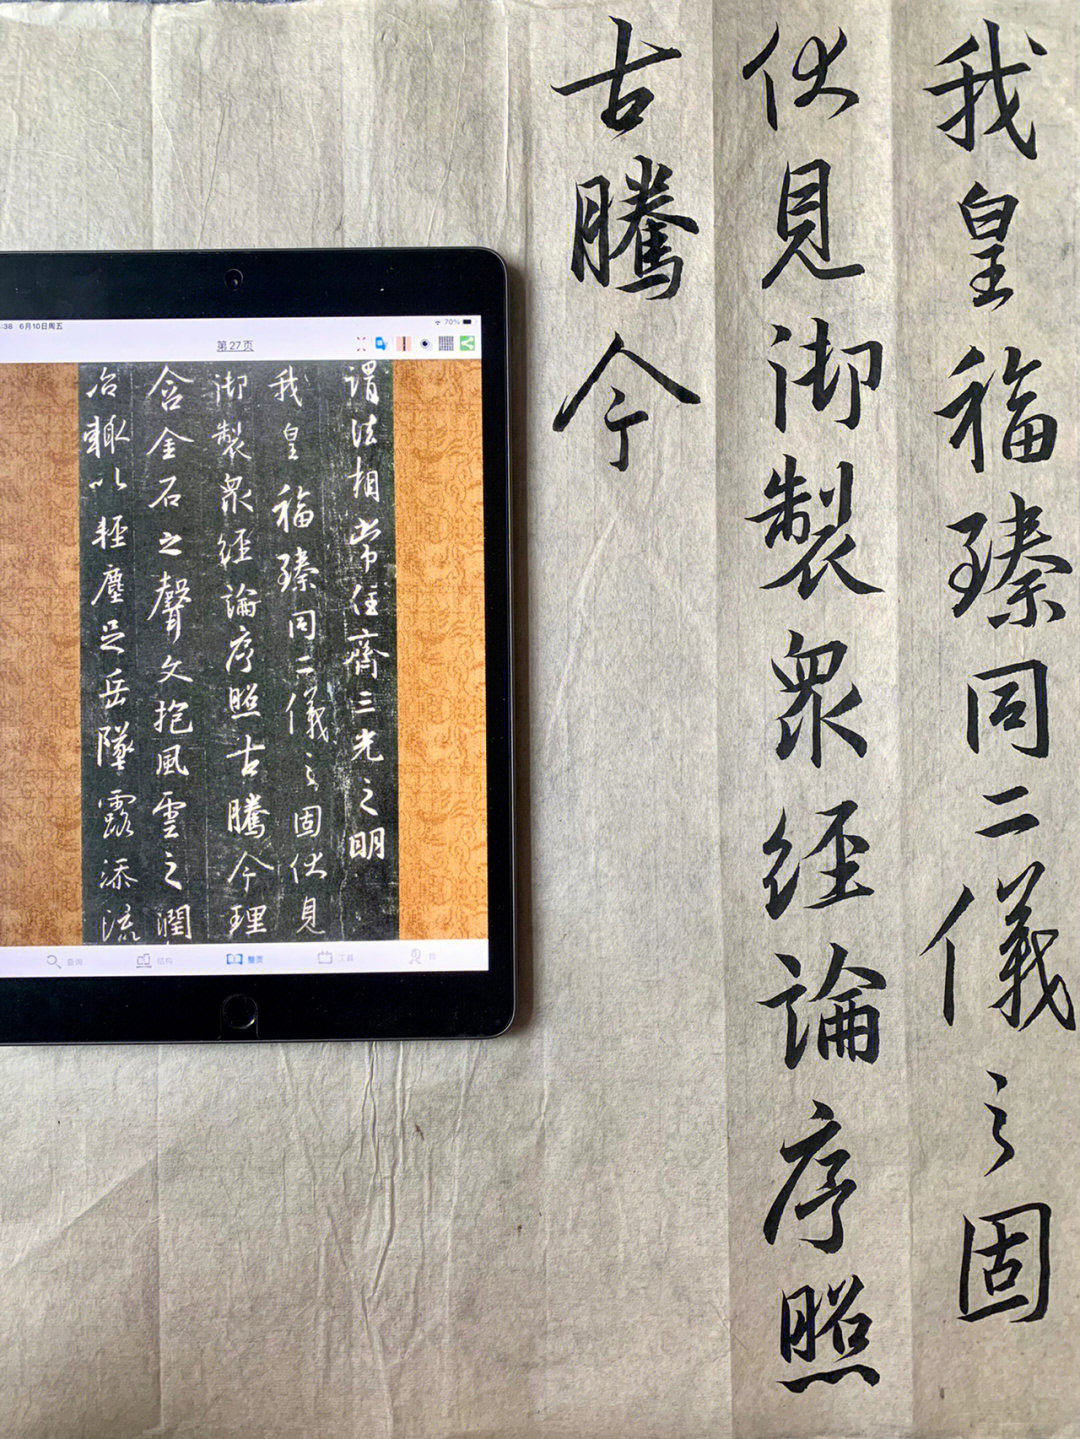 我皇福臻同二儀之固
伏見御製衆經論序照
古騰今
:38 6月10日周五
70%
第27页
謂法相常住齊三光之明
我皇福臻同二儀之固伏見
御製衆經論序照古騰今理
含金石之聲文抱風雲之潤
治輙以輕塵足岳墜露添流
查询
结构
整页
工具